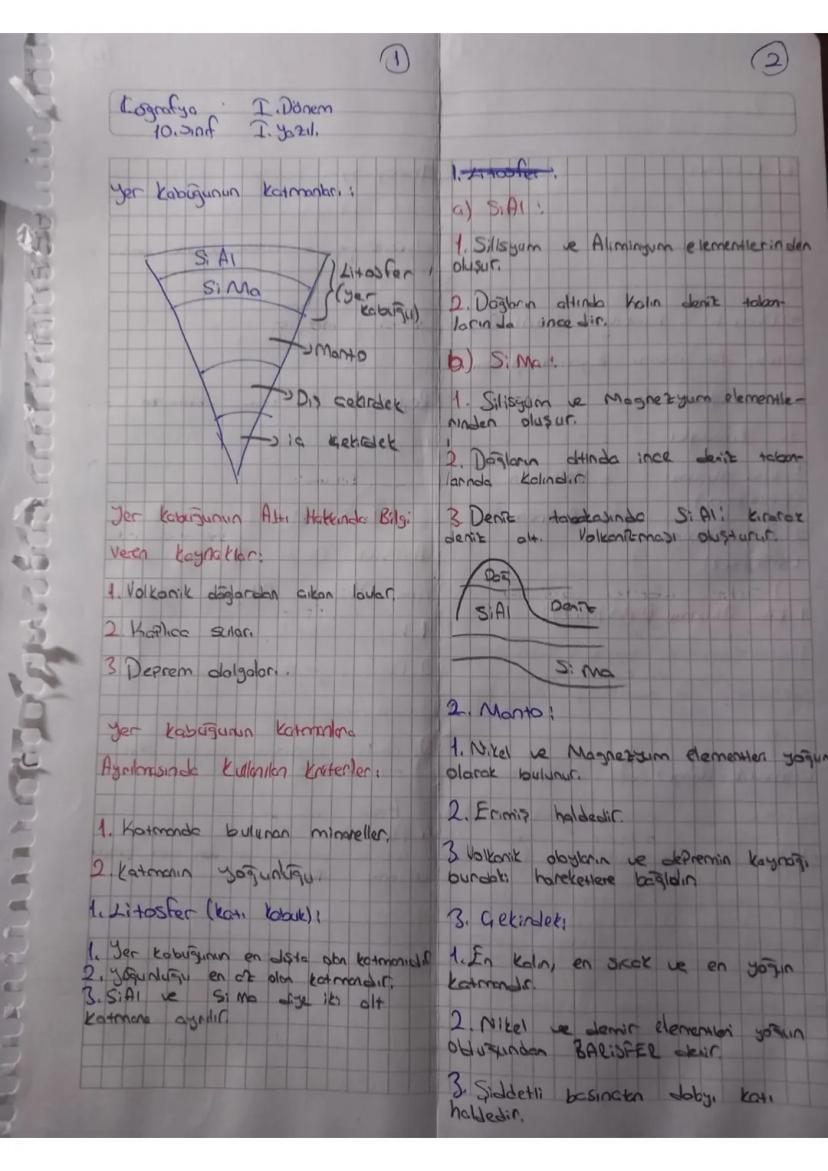 1
Coğrafya I. Dönem
10. sınıf I. yazılı
Yer Kabuğunun Katmanları:
SiAl
SiMa
Litosfer
(yer
kabuğu)
Manto
Dış çekirdek
iç çekirdek
Yer Kabuğunun Altı Hakkında Bilgi
Veren Kaynaklar:
1. Volkanik dağlardan çıkan lavlar.
2. Kaplıca suları
3. Deprem dalgaları.
Yer kabuğunun Katmanlara
Ayrılmasında Kullanılan Kriterler:
1. Katmanda bulunan mineraller.
2. Katmanın yoğunluğu.
1. Litosfer (katı kabuk):
1. Yer kabuğunun en dışta olan katmanıdır
2. yoğunluğu en az olan katmandır.
3. SiAl ve SiMa diye iki alt
katmana ayrılır.
2
1. Litosfer:
a) SiAl:
1. Silisyum ve Aliminyum elementlerinden
oluşur.
2. Dağların altında kalın deniz taban-
larında incedir.
b) SiMa:
1. Silisyum ve Magnezyum elementle-
rinden oluşur.
2. Dağların altında ince deniz taban-
larında kalındır
3. Deniz SiAl'i kırarak
deniz altı Volkanizması oluşturur.
Dağ
SiAl Deniz
SiMa
2. Manto:
1. Nikel ve Magnezyum elementleri yoğun
olarak bulunur.
2. Erimiş haldedir.
3. Volkanik olayların ve depremin kaynağı
burdaki hareketlere bağlıdır.
3. Çekirdek:
1. En kalın, en sıcak ve en yoğun
katmandır.
2. Nikel ve demir elementleri yoğun
olduğundan BARİSFER denir.
3. Şiddetli basınctan dolayı katı
haldedir.